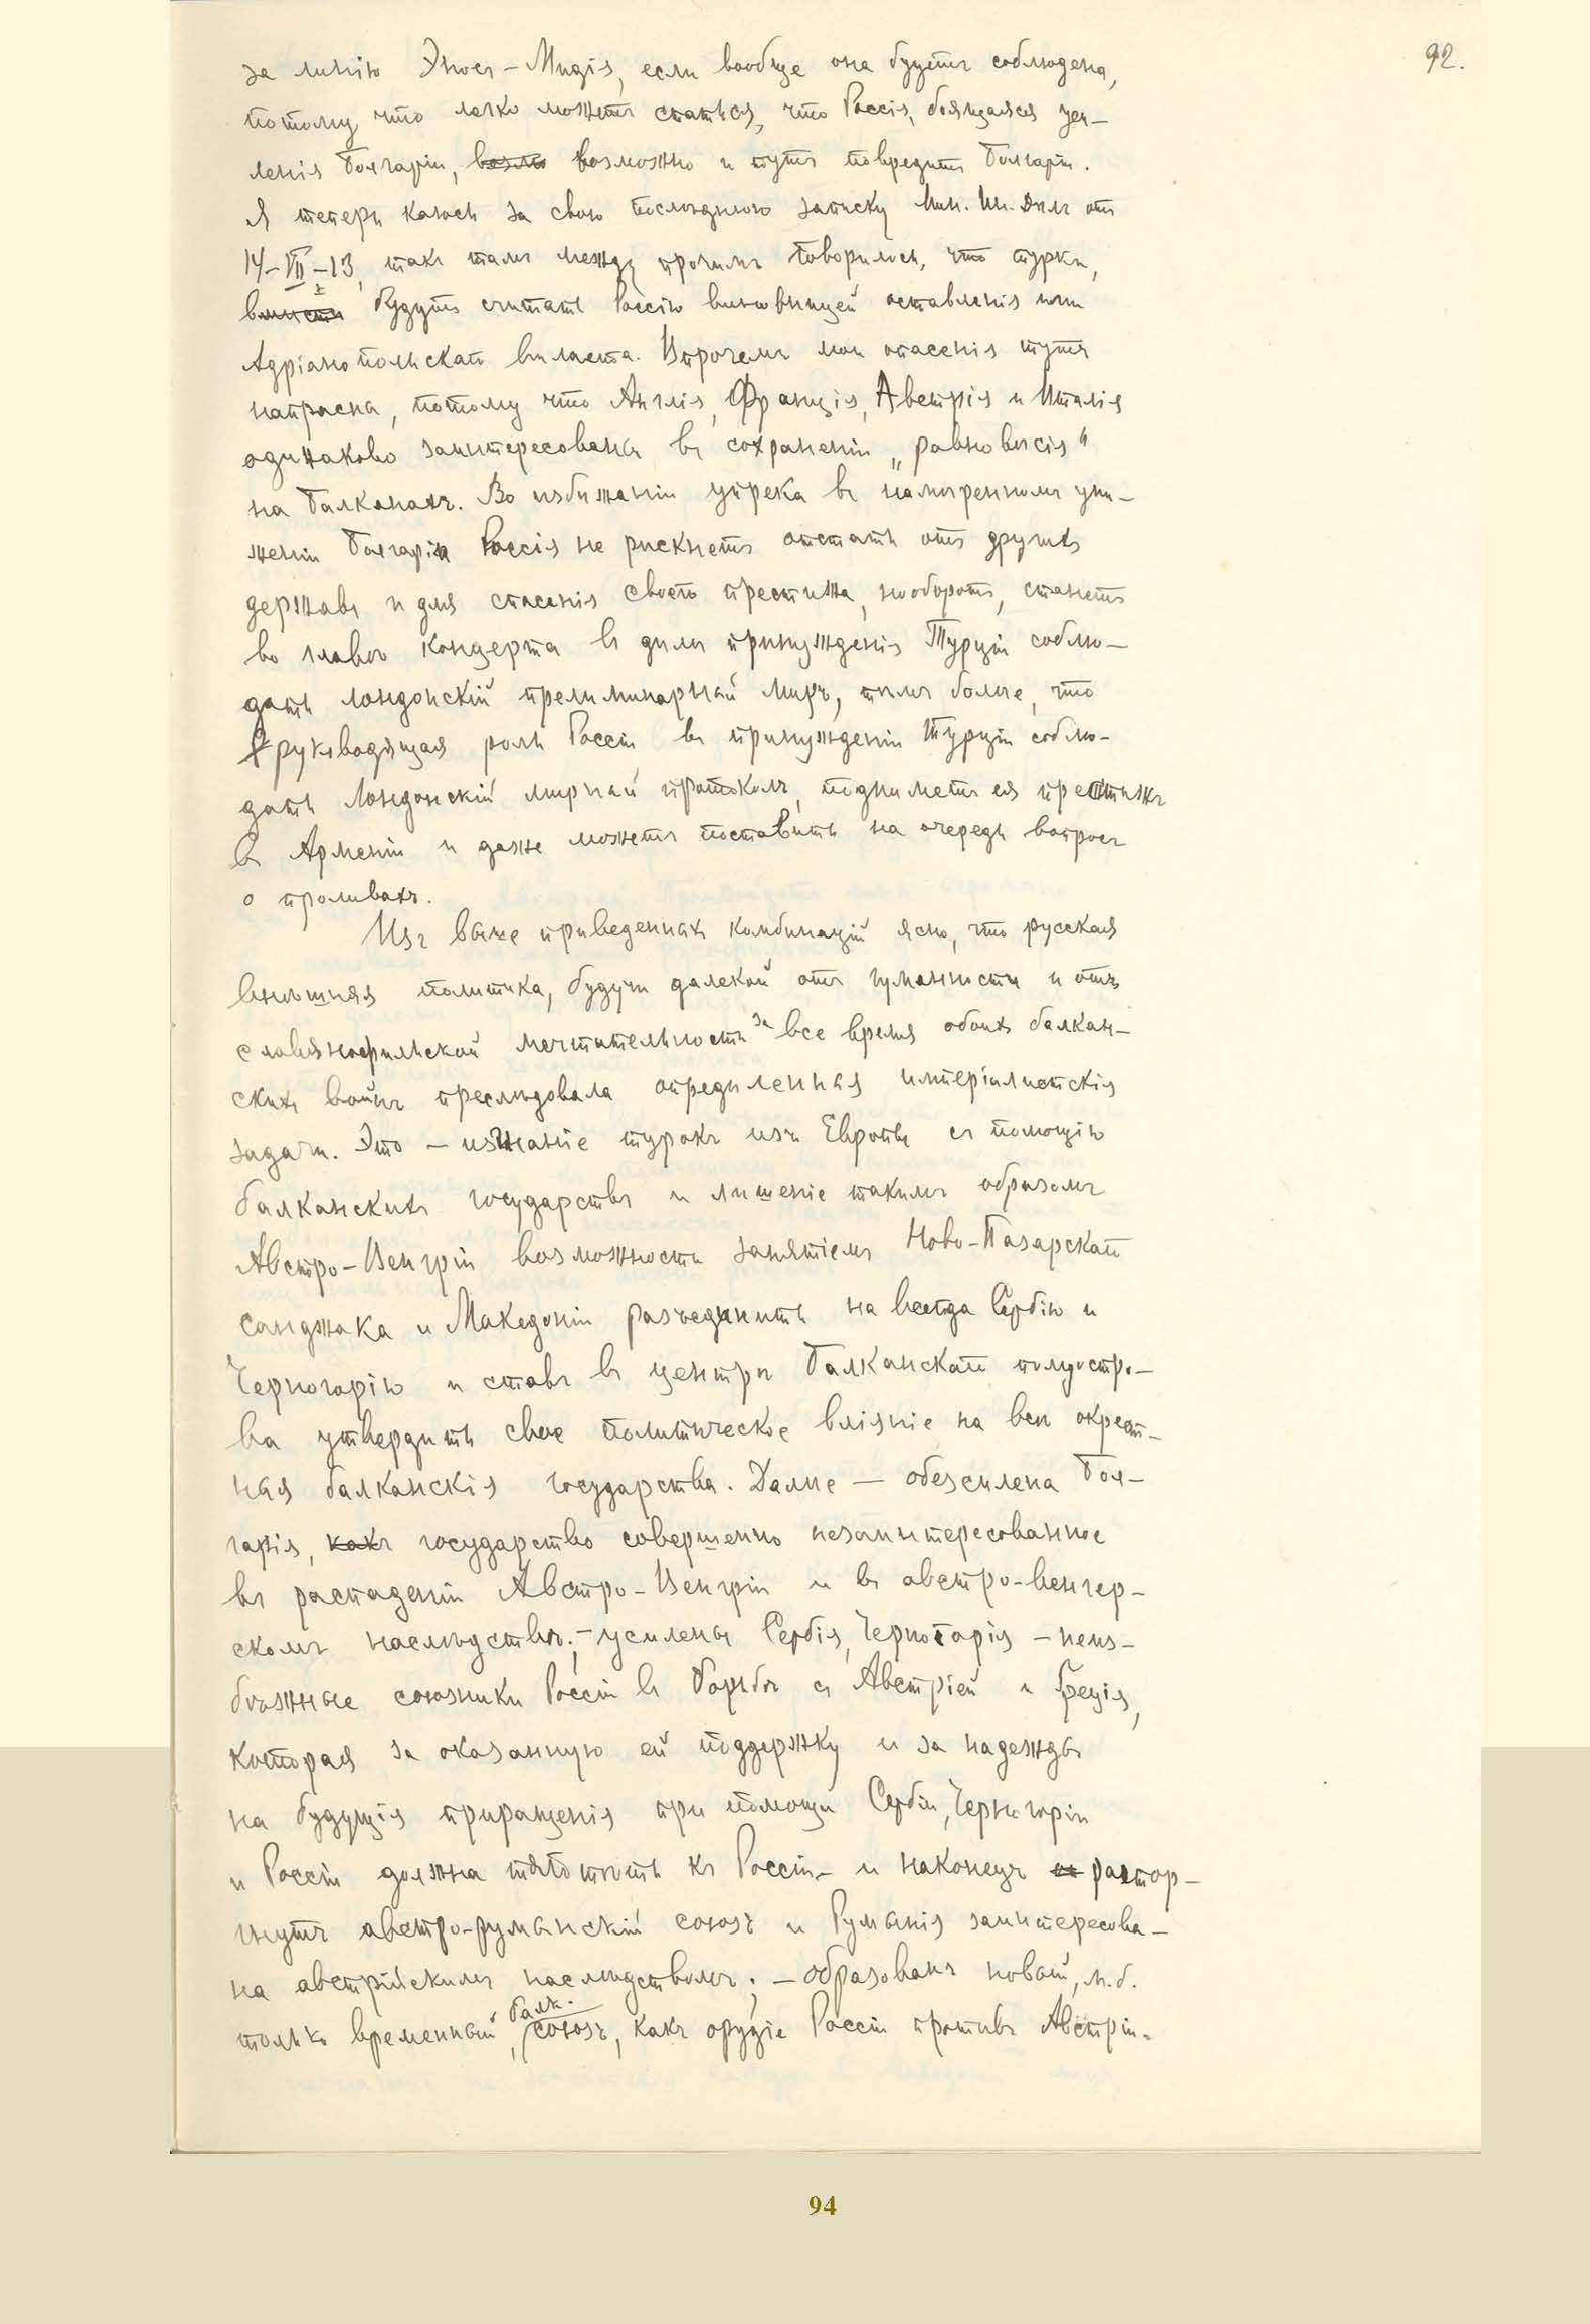 92.
за линію Эносъ-Мидія, если вообще она будетъ соблюдена,
потому что легко можетъ статься, что Россія, боящаяся уси-
ленія Болгаріи, возмо возможно и тутъ повредитъ Болгаріи.
Я теперь каюсь за свою послѣднюю записку Мин. Ин. Дѣлъ отъ
14-VII-13, такъ тамъ между прочимъ говорилось, что турки,
вмѣстѣ будутъ считать Россію виновницей оставленія ими
Адріанопольскаго вилаета. Впрочемъ мои опасенія тутъ
напрасны, потому что Англія, Франція, Австрія и Италія
одинаково заинтересованы въ сохраненіи „равновѣсія"
на Балканахъ. Во избѣжаніи упрека въ намѣренномъ уни-
женіи Болгаріи Россія не рискнетъ отстать отъ другихъ
державъ и для спасенія своего престижа, наоборотъ, станетъ
во главѣ концерта въ дѣлѣ принужденія Турціи соблю-
дать лондонскій прелиминарный миръ, тѣмъ болѣе, что
руководящая роль Россіи въ принужденіи Турціи соблю-
дать Лондонскій мирный протоколъ, подниметъ ея престижъ
въ Арменіи и даже можетъ поставить на очередь вопросъ
о проливахъ.
Изъ выше приведенныхъ комбинацій ясно, что русская
внѣшняя политика, будучи далекой отъ гуманности и отъ
славянофильской мечтательности за все время обоихъ балкан-
скихъ войнъ преслѣдовала опредѣленныя имперіалистскія
задачи. Это — изгнаніе турокъ изъ Европы съ помощію
балканскихъ государствъ и лишеніе такимъ образомъ
Австро-Венгріи возможности занятіемъ Ново-Пазарскаго
санджака и Македоніи разъединить на всегда Сербію и
Черногорію и ставъ въ центрѣ Балканскаго полуостро-
ва утвердить свое политическое вліяніе на всѣ окрест-
ныя балканскія государства. Далѣе — обезсилена Бол-
гарія, какъ государство совершенно незаинтересованное
въ распаденіи Австро-Венгріи и въ австро-венгер-
скомъ наслѣдствѣ; - усилены Сербія, Черногорія - неиз-
бѣжные союзники Россіи въ борьбѣ съ Австріей и Греція,
которая за оказанную ей поддержку и за надежды
на будущія приращенія при помощи Сербіи, Черногоріи
и Россіи должна тяготѣть къ Россіи - и наконецъ расторг-
нутъ австро-румынскій союзъ и Румынія заинтересова-
на австрійскимъ наслѣдствомъ; - образованъ новый, м.б.
только временный, балк. союзъ, какъ орудіе Россіи противъ Австріи.
94